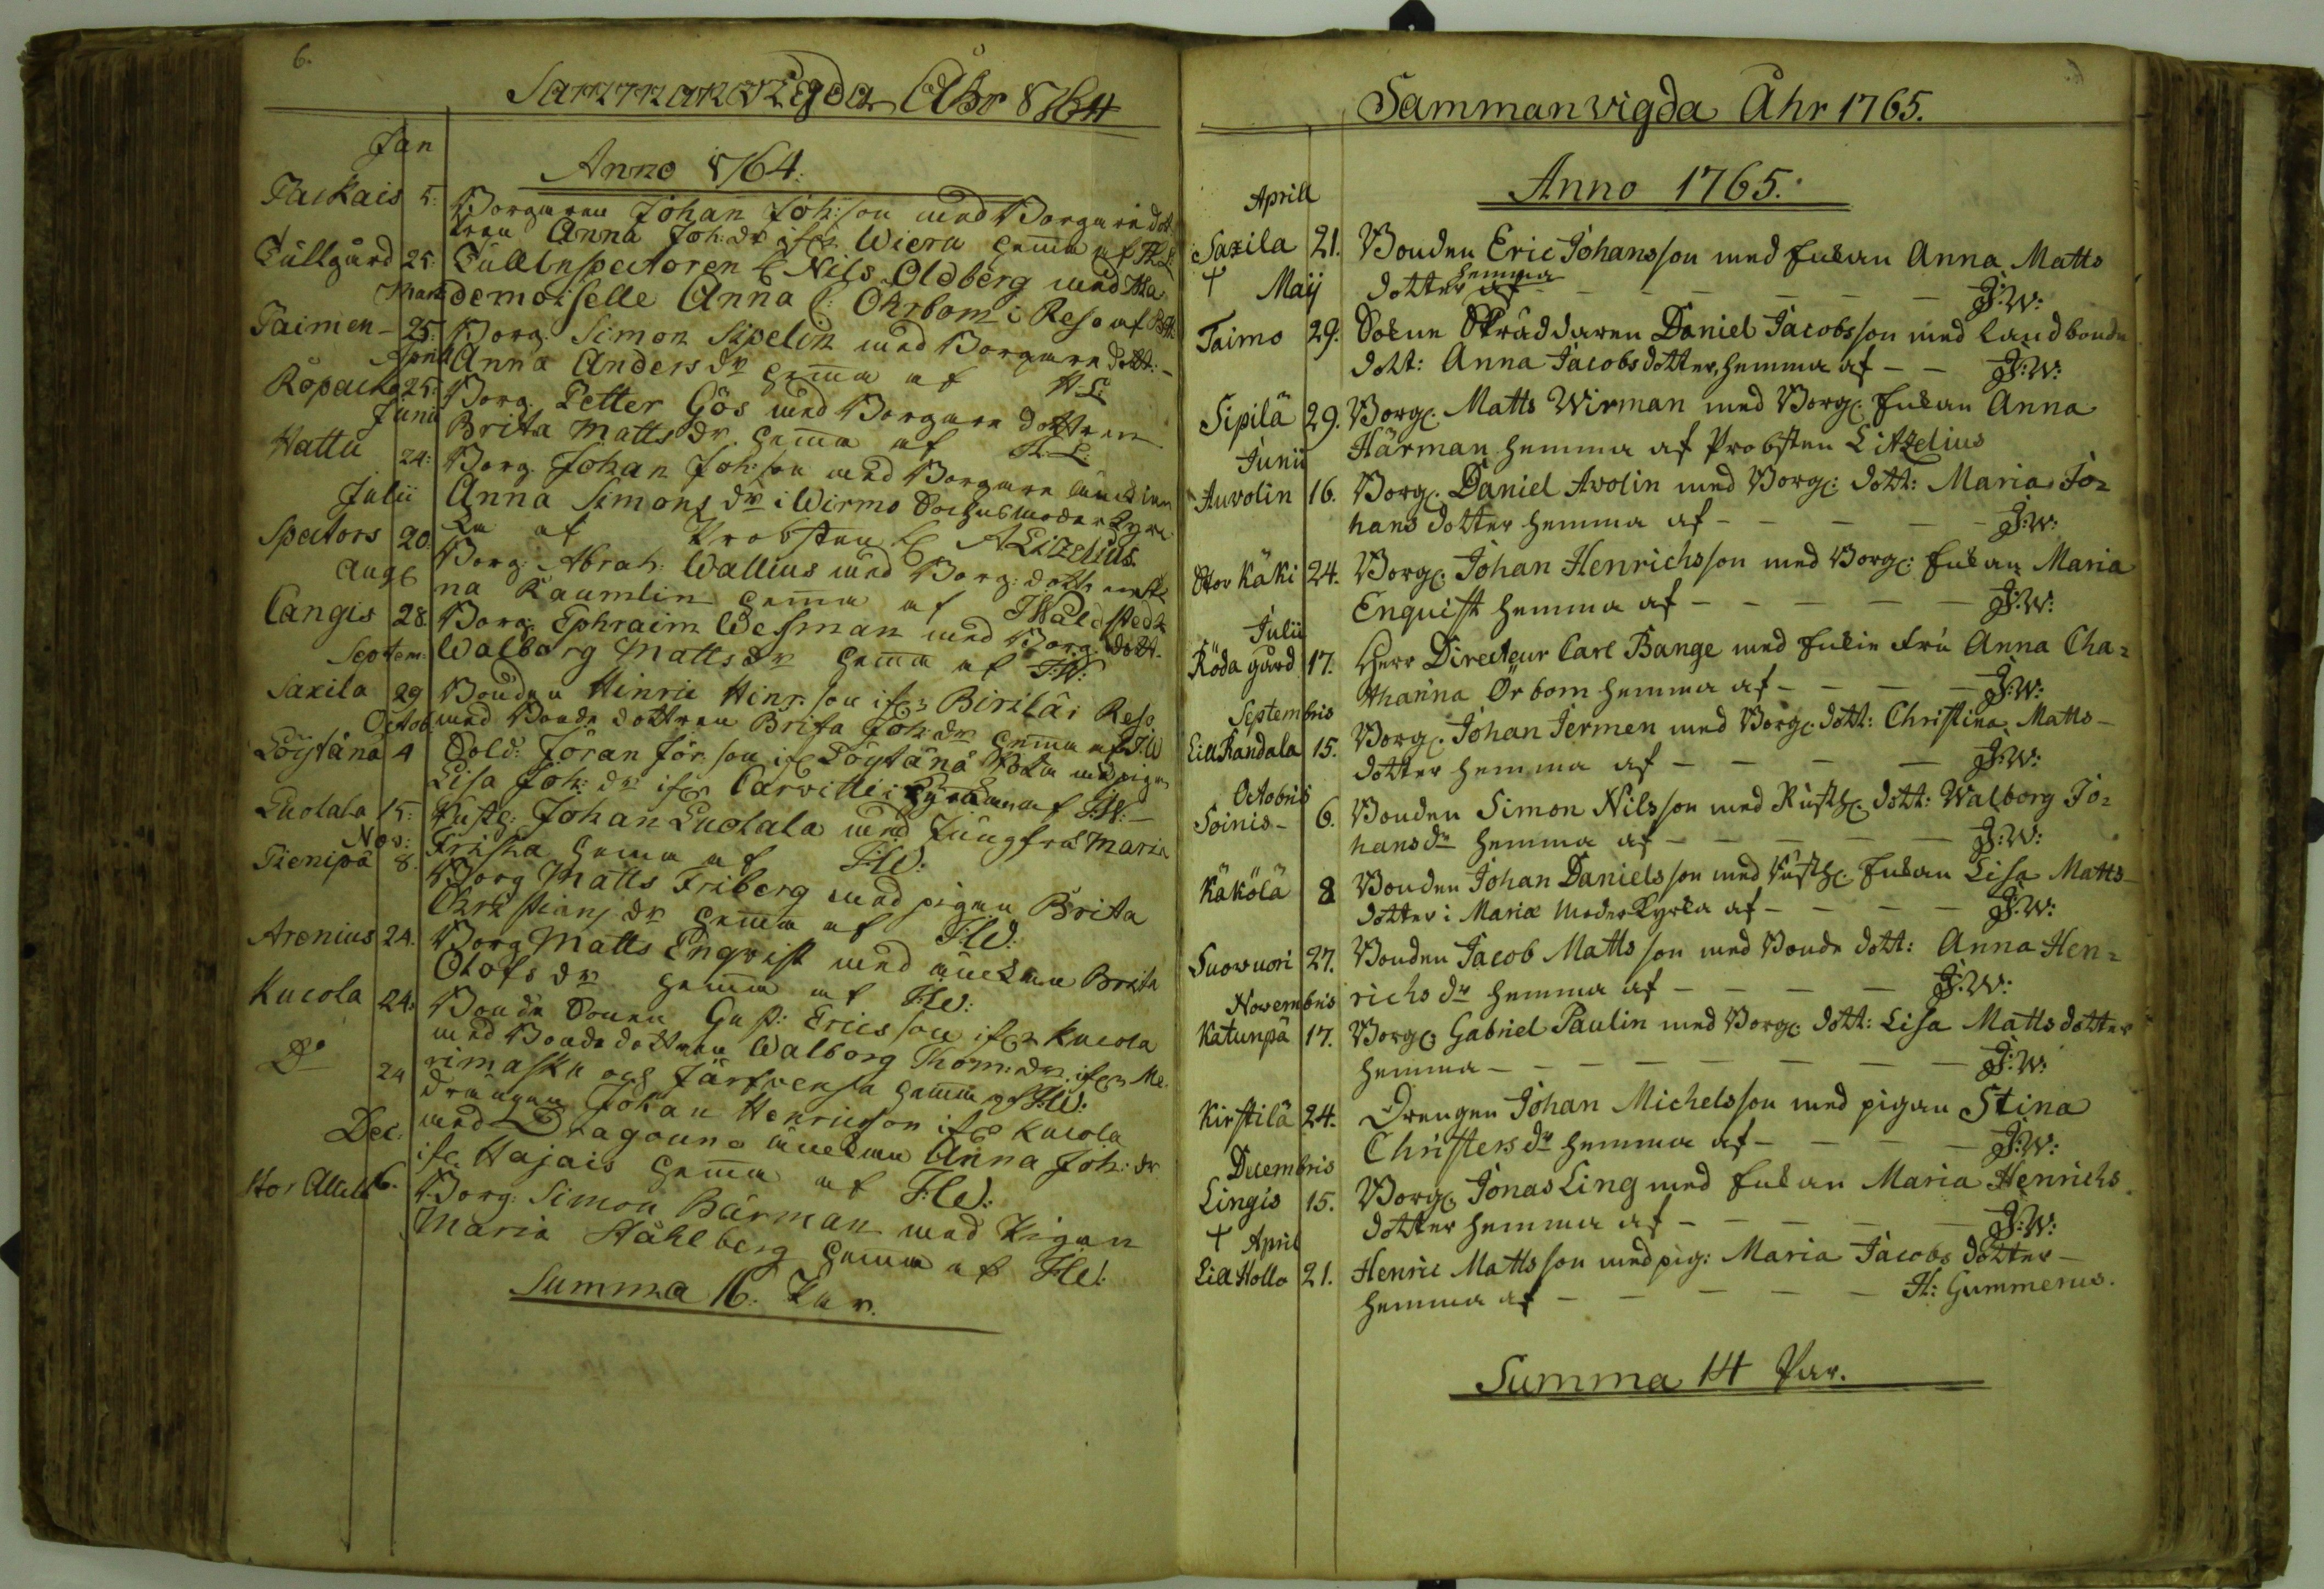 6.
Sammanvigda Åhr 1764
Jan
Anno 1764.
Packais 5. Borgaren Johan Joh:son med Borgare dot
tren Anna Joh:dr Wiera hema af
Tullgård 25. Tull Inspectoren Nils Oldberg med
Mart demoiselle Anna C: Öhrbom i Reso af
Paimen 25. Borg. Simon Sipelin med Borgare dott:
April Anna Anders dr hema af
Ropacko 25. Borg. Petter Gös med Borgare dottren
Junii Brita Matts dr hema af
Hattu 24: Borg. Johan Joh:son med Borgare
Julii Anna Simons dr i Wirmo
af Probsten A Lizelius.
Spectors 20. Borg: Abrah: Wallius med Borg: dott:
Aug na Raumlin hema af
Langis 28. Borg. Ephraim Wesman med Borg. dott.
Septem: Walborg Matts dr hema af J:W:
Saxila 29 Bonden Hinric Hinr:son Birilä i Reso
Octob. med Bonde dottren Brita Joh:dr hema af J:W
Löytänä 4 Sold: Jöran Jör:son Löytänä med pigan
Lisa Joh:dr af J:W:
Luolala 15: Rustg: Johan Luolala med Jungfru Maria
Nov: Friska hema af J:W:
Pienipä 8. Borg Matts Friberg med pigan Brita
Christians dr hema af J:W:
Arenius 24. Borg Matts Enqvist med Brita
Olofs dr hema af J:W:
Kucola 24: Bonde Sonen Gust: Ericsson Kucola
med Bonde dottren Walborg Thom:dr Me
rimasku och Järfvensa hema af J:W:
Do 24 drängen Johan Henricsson Kucola
med Dragoune Anna Joh:dr
Dec. Hajais hema af J:W:
Stor Allela 6. Borg: Simon Bärman med Pigan
Maria Ståhlberg hema af J:W:
Summa 16. Par.
Sammanvigda Åhr 1765.
Anno 1765.
Aprill
Saxila 21. Bonden Eric Johansson med Enkan Anna Matts
hemma
† Maij dotter af – – – – – J:W:
Taimo 29. Sokne Skräddaren Daniel Jacobsson med Landbonde
dott: Anna Jacobsdotter, hemma af – – J:W:
Sipilä 29. Borg. Matts Wirman med Borg. Enkan Anna
Junii Härman hemma af Probsten Litzelius
Auvolin 16. Borg. Daniel Avolin med Borg: dott: Maria Jo=
hans dotter hemma af – – – – – J:W:
Stor Käki 24. Borg. Johan Henrichsson med Borg: Enkan Maria
Enquist hemma af – – – – – J:W:
Julii
Röda gård 17. Herr Directeur Carl Bange med Enke Fru Anna Cha=
tharina Örbom hemma af – – – – J:W:
Septembris
Lilla Kandala 15. Borg. Johan Jermen med Borg. dott: Christina Matts –
dotter hemma af – – – – J:W:
Octobris
Soinis – 6. Bonden Simon Nilsson med Rusth. dott: Walborg Jo=
hans dr hemma af – – – – – J:W:
Käkölä 8 Bonden Johan Danielsson med Rusth. Enkan Lisa Matts –
dotter i Mariæ Moderkyrka af – – – – J:W:
Suovuori 27. Bonden Jacob Mattsson med Bonde dott: Anna Hen=
richs dr hemma af – – – – J:W:
Novembris
Katunpä 17. Borg: Gabriel Paulin med Borg. dott: Lisa Mattsdotter
hemma – – – – – – J:W:
Kirstilä 24. Drengen Johan Michelsson med pigan Stina
Christers dr hemma af – – – – J:W:
Decembris
Lingis 15. Borg. Jonas Ling med Enkan Maria Henrichs
dotter hemma af – – – – – J:W:
† April
Lilla Hollo 21. Henric Mattsson med pig: Maria Jacobs dotter –
hemma af – – – – – H: Gummerus.
Summa 14 Par.